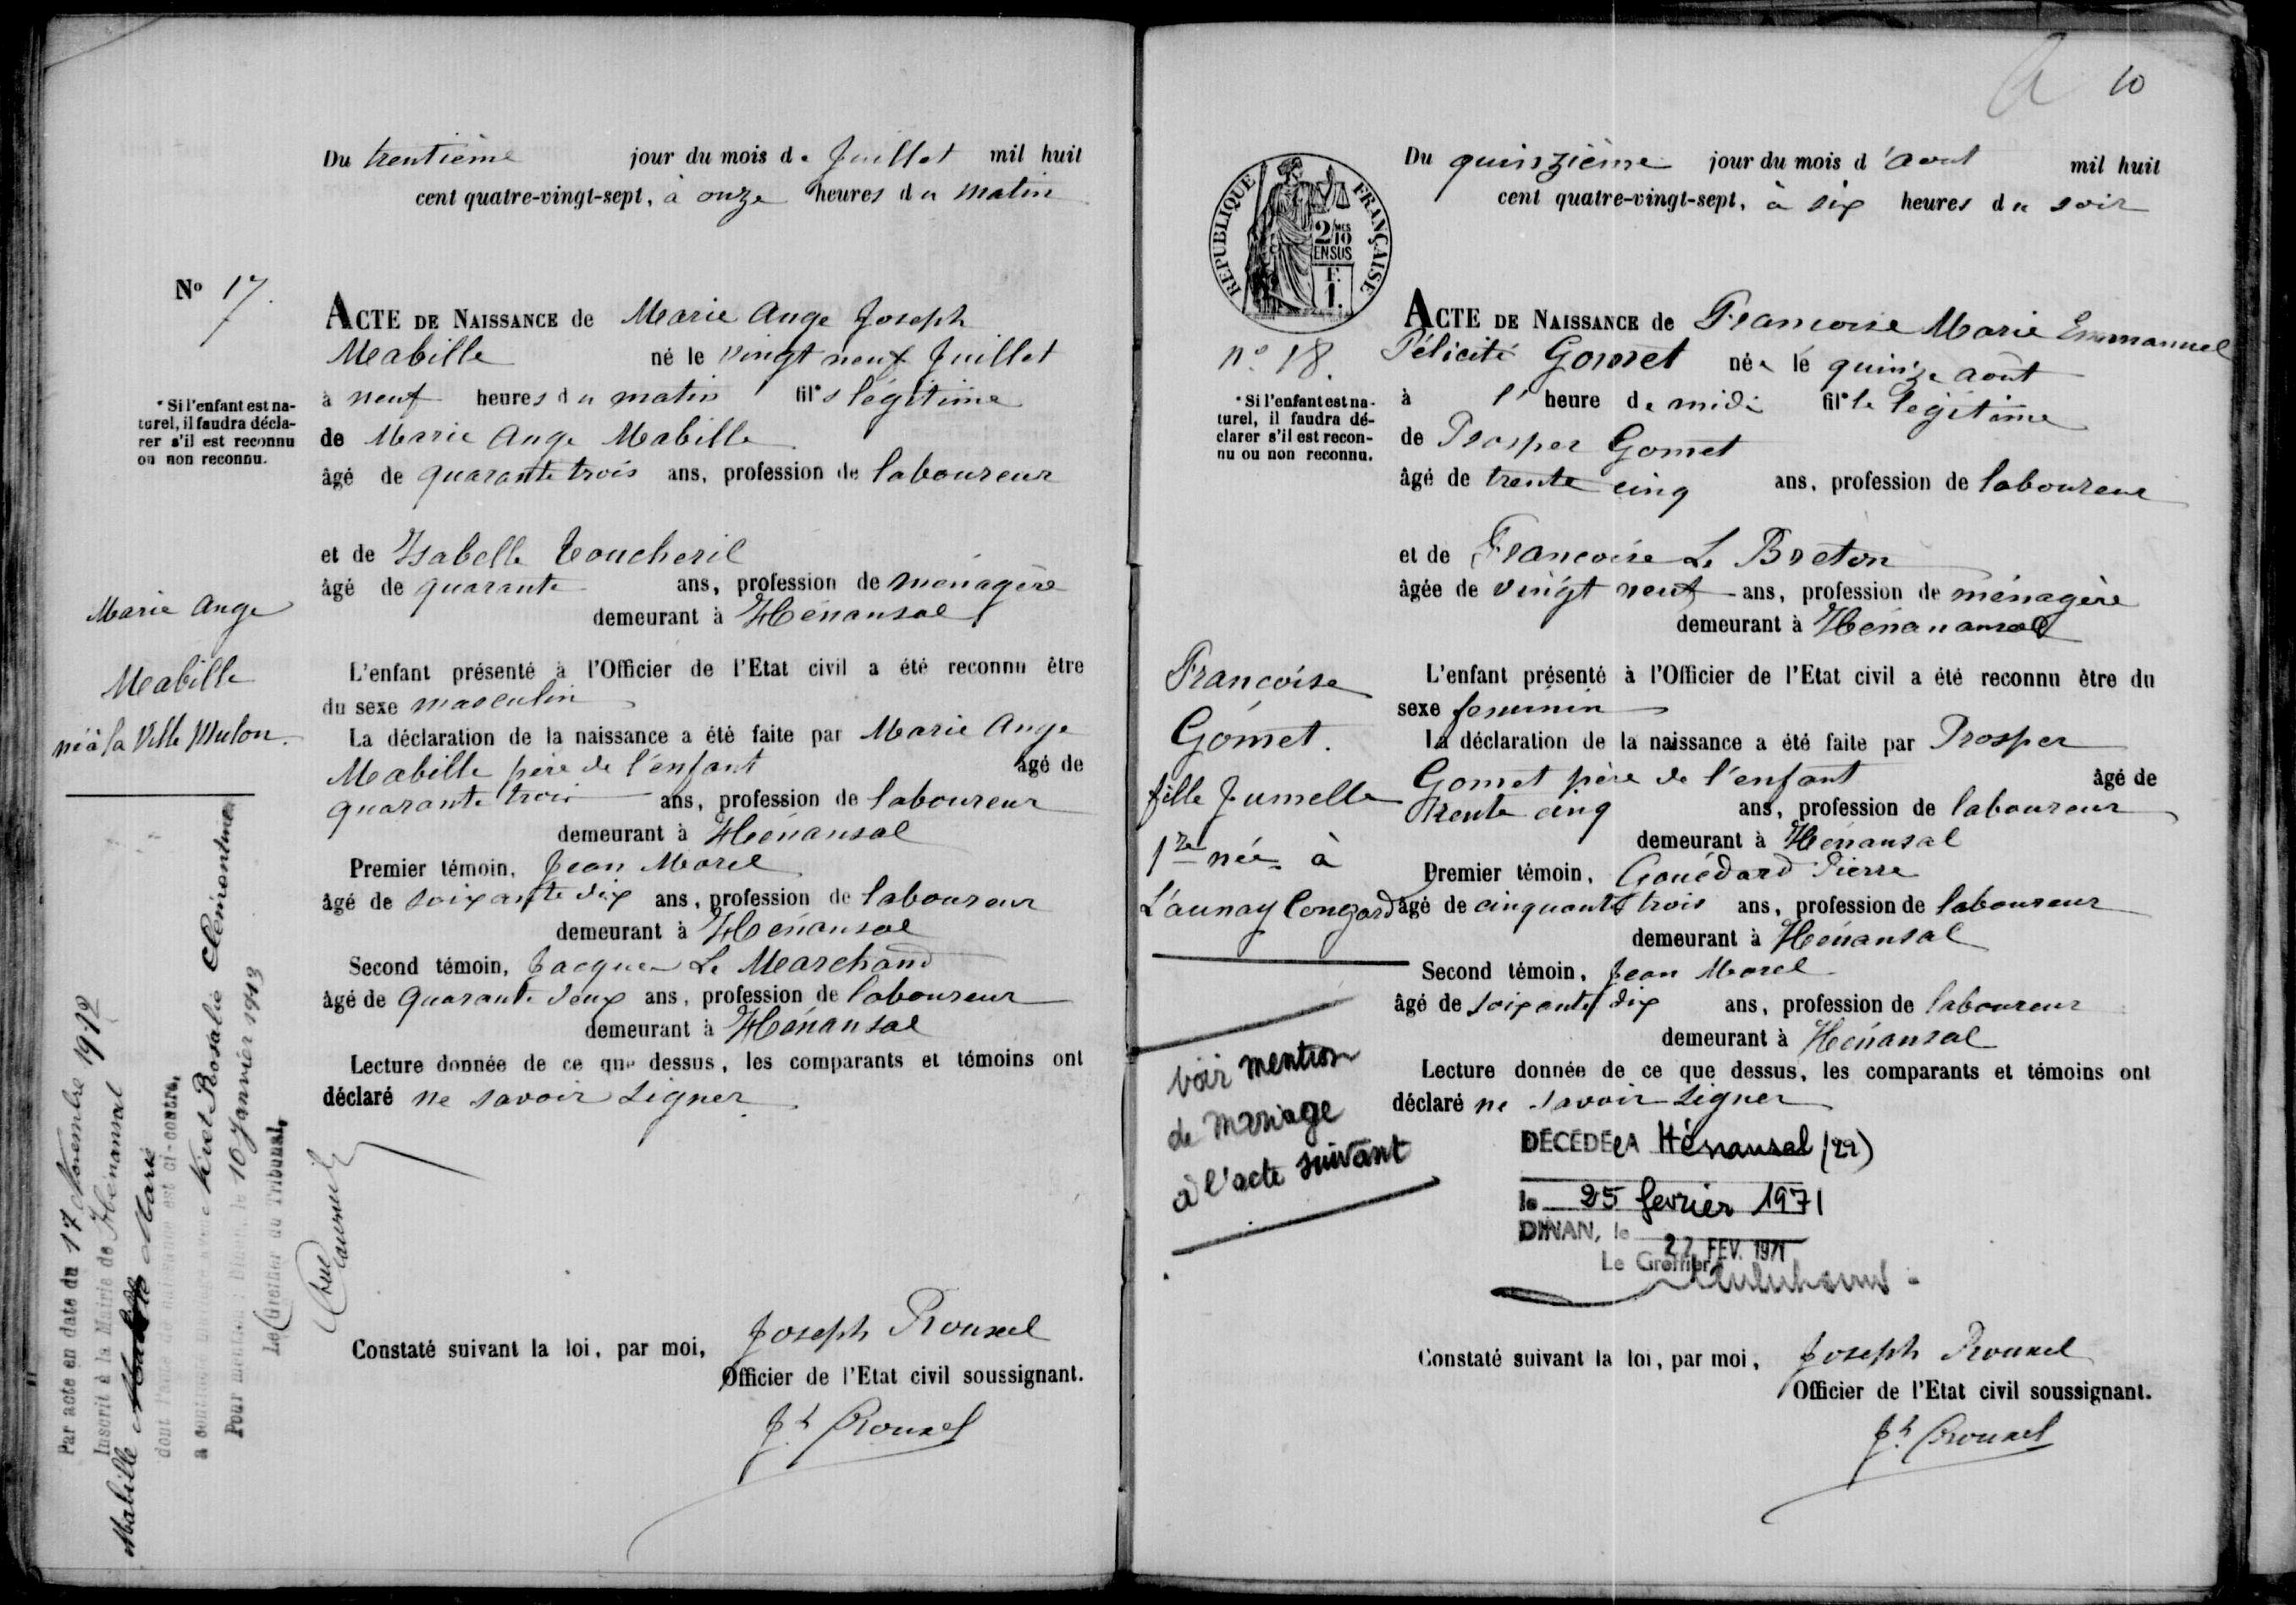 Du trentième jour du mois de Juillet mil huit
cent quatre-vingt-sept, à onze heures du matin
No 17.
ACTE DE NAISSANCE de Marie Ange Joseph
Mabille né le vingt neuf Juillet
à neuf heures du matin fils légitime
* Si l'enfant est na-
turel, il faudra décla-
rer s'il est reconnu
ou non reconnu.
de Marie Ange Mabille
âgé de quarante trois ans, profession de laboureur
et de Isabelle Toucheril
âgé de quarante ans, profession de ménagère
demeurant à Hénansal
Marie Ange
Mabille
né à la Ville Mulon.
L'enfant présenté à l'Officier de l'Etat civil a été reconnu être
du sexe masculin
La déclaration de la naissance a été faite par Marie Ange
Mabille père de l'enfant âgé de
quarante trois ans, profession de laboureur
demeurant à Hénansal
Premier témoin, Jean Morel
âgé de soixante dix ans, profession de laboureur
demeurant à Hénansal
Second témoin, Jacques Le Marchand
âgé de quarante deux ans, profession de laboureur
demeurant à Hénansal
Lecture donnée de ce que dessus, les comparants et témoins ont
déclaré ne savoir signer
Par acte en date du 17 Novembre 1912
Inscrit à la Mairie de Hénansal
Mabille Marie
dont l'acte de naissance est ci-contre,
a contracté mariage avec Rosalie Clémentine
Pour mention : Dinan, le 10 Janvier 1913
Le Greffier du Tribunal,
Constaté suivant la loi, par moi, Joseph Rouxel
Officier de l'Etat civil soussignant.
Jh Rouxel
10
Du quinzième jour du mois d'aout mil huit
cent quatre-vingt-sept, à six heures du soir
REPUBLIQUE FRANÇAISE
2/10 MES
EN SUS
F.
1.
no. 18.
ACTE DE NAISSANCE de Francoise Marie Emmanuel
Félicité Gomet née le quinze août
à l' heure de midi fille légitime
* Si l'enfant est na-
turel, il faudra dé-
clarer s'il est recon-
nu ou non reconnu.
de Prosper Gomet
âgé de trente cinq ans, profession de laboureur
et de Francoise Le Breton
âgée de vingt neuf ans, profession de ménagère
demeurant à Hénanansal
Francoise
Gomet.
fille Jumelle
1re née à
L'aunay Congard
L'enfant présenté à l'Officier de l'Etat civil a été reconnu être du
sexe feminin
La déclaration de la naissance a été faite par Prosper
Gomet père de l'enfant âgé de
trente cinq ans, profession de laboureur
demeurant à Hénansal
Premier témoin, Gouédard Pierre
âgé de cinquante trois ans, profession de laboureur
demeurant à Hénansal
Second témoin, Jean Morel
âgé de soixante dix ans, profession de laboureur
demeurant à Hénansal
Lecture donnée de ce que dessus, les comparants et témoins ont
déclaré ne savoir signer
voir mention
de mariage
à l'acte suivant
DÉCÉDÉe A Hénansal (22)
le 25 fevrier 1971
DINAN, le 27 FEV. 1971
Le Greffier
Constaté suivant la loi, par moi, Joseph Rouxel
Officier de l'Etat civil soussignant.
Jh. Rouxel